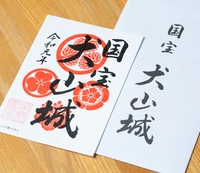 国宝
犬山城
令和元年
国宝
犬山城